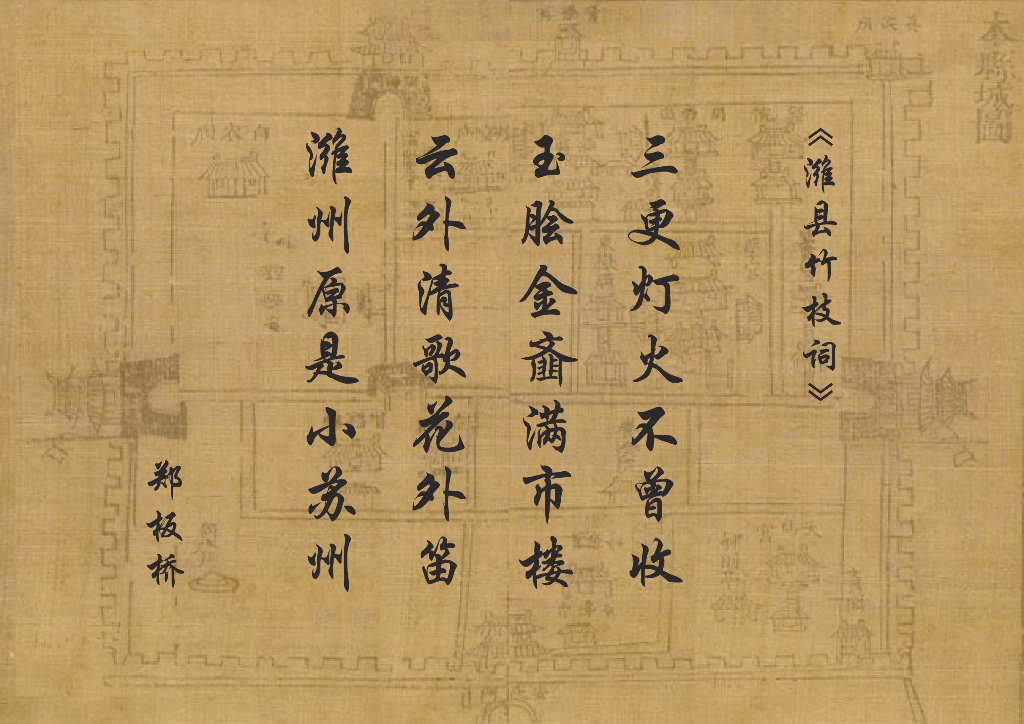 《潍县竹枝词》
三更灯火不曾收
玉脍金齑满市楼
云外清歌花外笛
潍州原是小苏州
郑板桥
本縣城圖